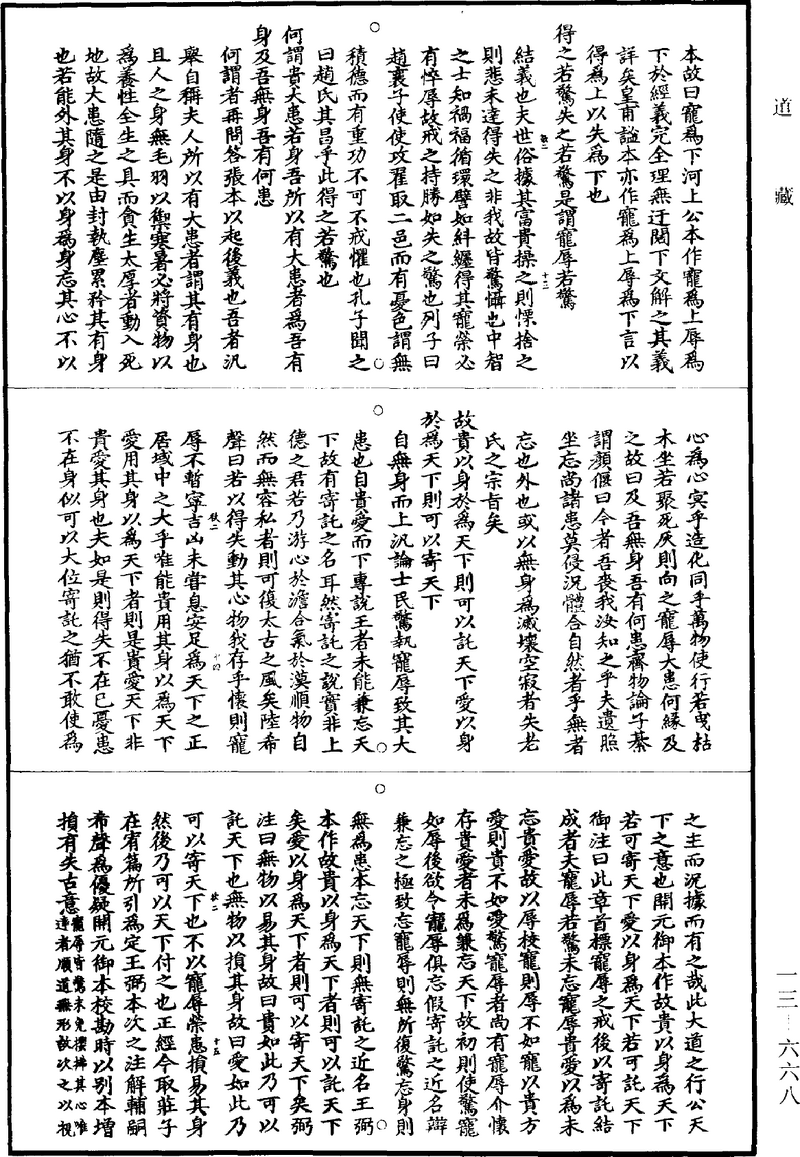 道藏
本故曰寵爲下河上公本作寵爲上辱爲
下於經義完全理無迂闊下文解之其義
詳矣皇甫謐本亦作寵爲上辱爲下言以
得爲上以失爲下也
得之若驚失之若驚是謂寵辱若驚
結義也夫世俗據其富貴操之則慄捨之
則悲未達得失之非我故皆驚懾也中智
之士知禍福循環譬如糾纏得其寵榮必
有悴辱故戒之持勝如失之驚也列子曰
趙襄子使使攻翟取二邑而有憂色謂無
積德而有重功不可不戒懼也孔子聞之
曰趙氏其昌乎此得之若驚也
何謂貴大患若身吾所以有大患者爲吾有
身及吾無身吾有何患
何謂者再問答張本以起後義也吾者汎
舉自稱夫人所以有大患者謂其有身也
且人之身無毛羽以禦寒暑必將資物以
爲養性全生之具而貪生太厚者動入死
地故大患隨之是由封執塵累矜其有身
也若能外其身不以身爲身忘其心不以
心爲心冥乎造化同乎萬物使行若曳枯
木坐若聚死灰則向之寵辱大患何緣及
之故曰及吾無身吾有何患齊物論子綦
謂顏偃曰今者吾喪我汝知之乎夫遺照
坐忘尚諸患莫侵況體合自然者乎無者
忘也外也或以無身爲滅壞空寂者失老
氏之宗旨矣
故貴以身於爲天下則可以託天下愛以身
於爲天下則可以寄天下
自無身而上汎論士民驚執寵辱致其大
患也自貴愛而下專說王者未能兼忘天
下故有寄託之名耳然寄託之說實非上
德之君若乃游心於澹合氣於漠順物自
然而無容私者則可復太古之風矣陸希
聲曰若以得失動其心物我存乎懷則寵
辱不暫寧吉凶未嘗息安足爲天下之正
居域中之大乎唯能貴用其身以爲天下
愛用其身以爲天下者則是貴愛天下非
貴愛其身也夫如是則得失不在已憂患
不在身似可以大位寄託之猶不敢使爲
之主而況據而有之哉此大道之行公天
下之意也開元御本作故貴以身爲天下
若可寄天下愛以身爲天下若可託天下
御注曰此章首標寵辱之戒後以寄託結
成者夫寵辱若驚未忘寵辱貴愛以爲未
忘貴愛故以辱校寵則辱不如寵以貴方
愛則貴不如愛驚寵辱者尚有寵辱介懷
存貴愛者未爲兼忘天下故初則使驚寵
如辱後欲令寵辱俱忘假寄託之近名辯
兼忘之極致忘寵辱則無所復驚忘身則
無爲患本忘天下則無寄託之近名王弼
本作故貴以身爲天下者則可以託天下
矣愛以身爲天下者則可以寄天下矣弼
注曰無物以易其身故曰貴如此乃可以
託天下也無物以損其身故曰愛如此乃
可以寄天下也不以寵辱榮患損易其身
然後乃可以天下付之也正經今取莊子
在宥篇所引爲定王弼本次之注解輔嗣
希聲爲優疑開元御本校勘時以別本增
損有失古意寵辱皆驚未免攖拂其心唯
達者順道無形故次之以視
一三—六六八